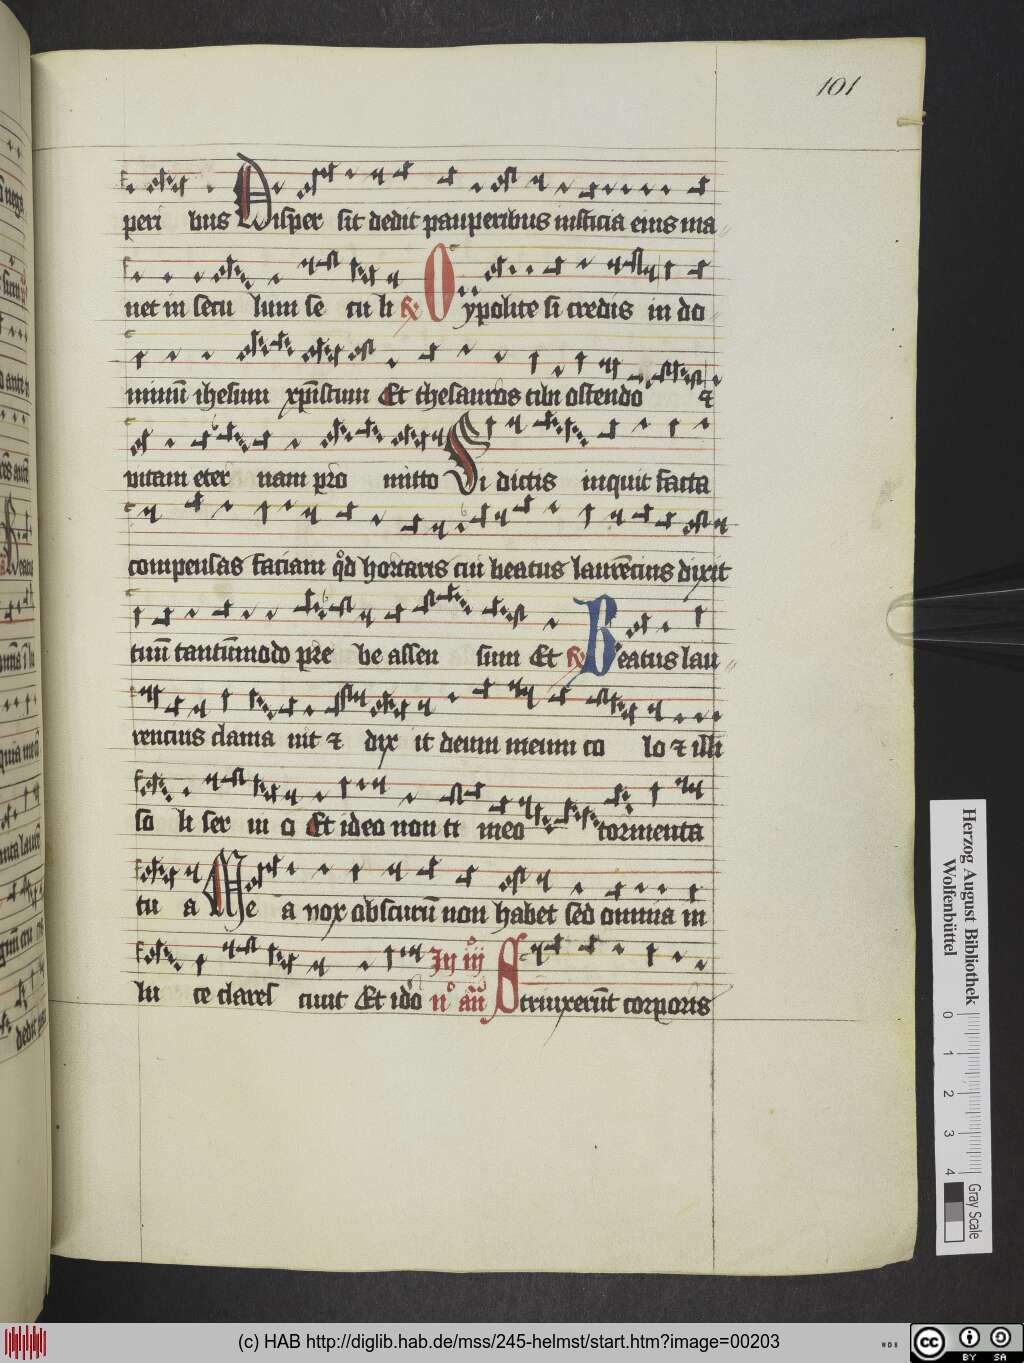 101
peri bus Disper sit dedit pauperibus iusticia eius ma
net in secu lum se cu li ℟ Oypolite si credis in do
minū ihesum xp̄istum Et thesauros tibi ostendo &
vitam eter nam pro mitto Si dictis inquit facta
compensas faciam qd̊ hortaris cui beatus laurēcius dixit
tuū tantūmodo pre be assen sum Et ℟ Beatus lau
rencius clama uit ⁊ dix it deum meum co lo ⁊ illi
so li ser ui o Et ideo non ti meo tormenta
tu a Me a nox obscurū non habet sed omnia in
lu ce clares cunt Et ido In iij
n° añ Struxerūt corporis
Herzog August Bibliothek
Wolfenbüttel
0 1 2 3 4
Gray Scale
(c) HAB http://diglib.hab.de/mss/245-helmst/start.htm?image=00203
WDB
cc BY SA